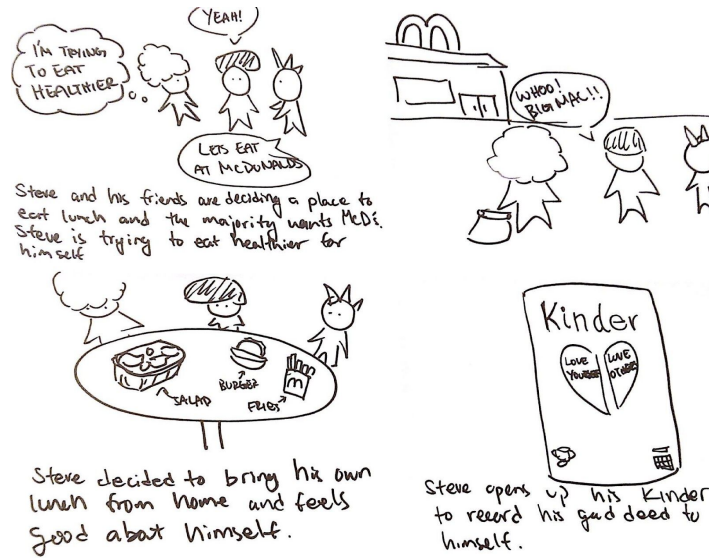 I'M TRYING
TO EAT
HEALTHIER
YEAH!
LETS EAT
AT MCDONALDS
Steve and his friends are deciding a place to
eat lunch and the majority wants McD's.
Steve is trying to eat healthier for
himself
WHOO!
BIG MAC!!
SALAD
BURGER
FRIES
Steve decided to bring his own
lunch from home and feels
good about himself.
Kinder
LOVE
YOURSELF
LOVE
OTHERS
Steve opens up his Kinder
to record his good deed to
himself.